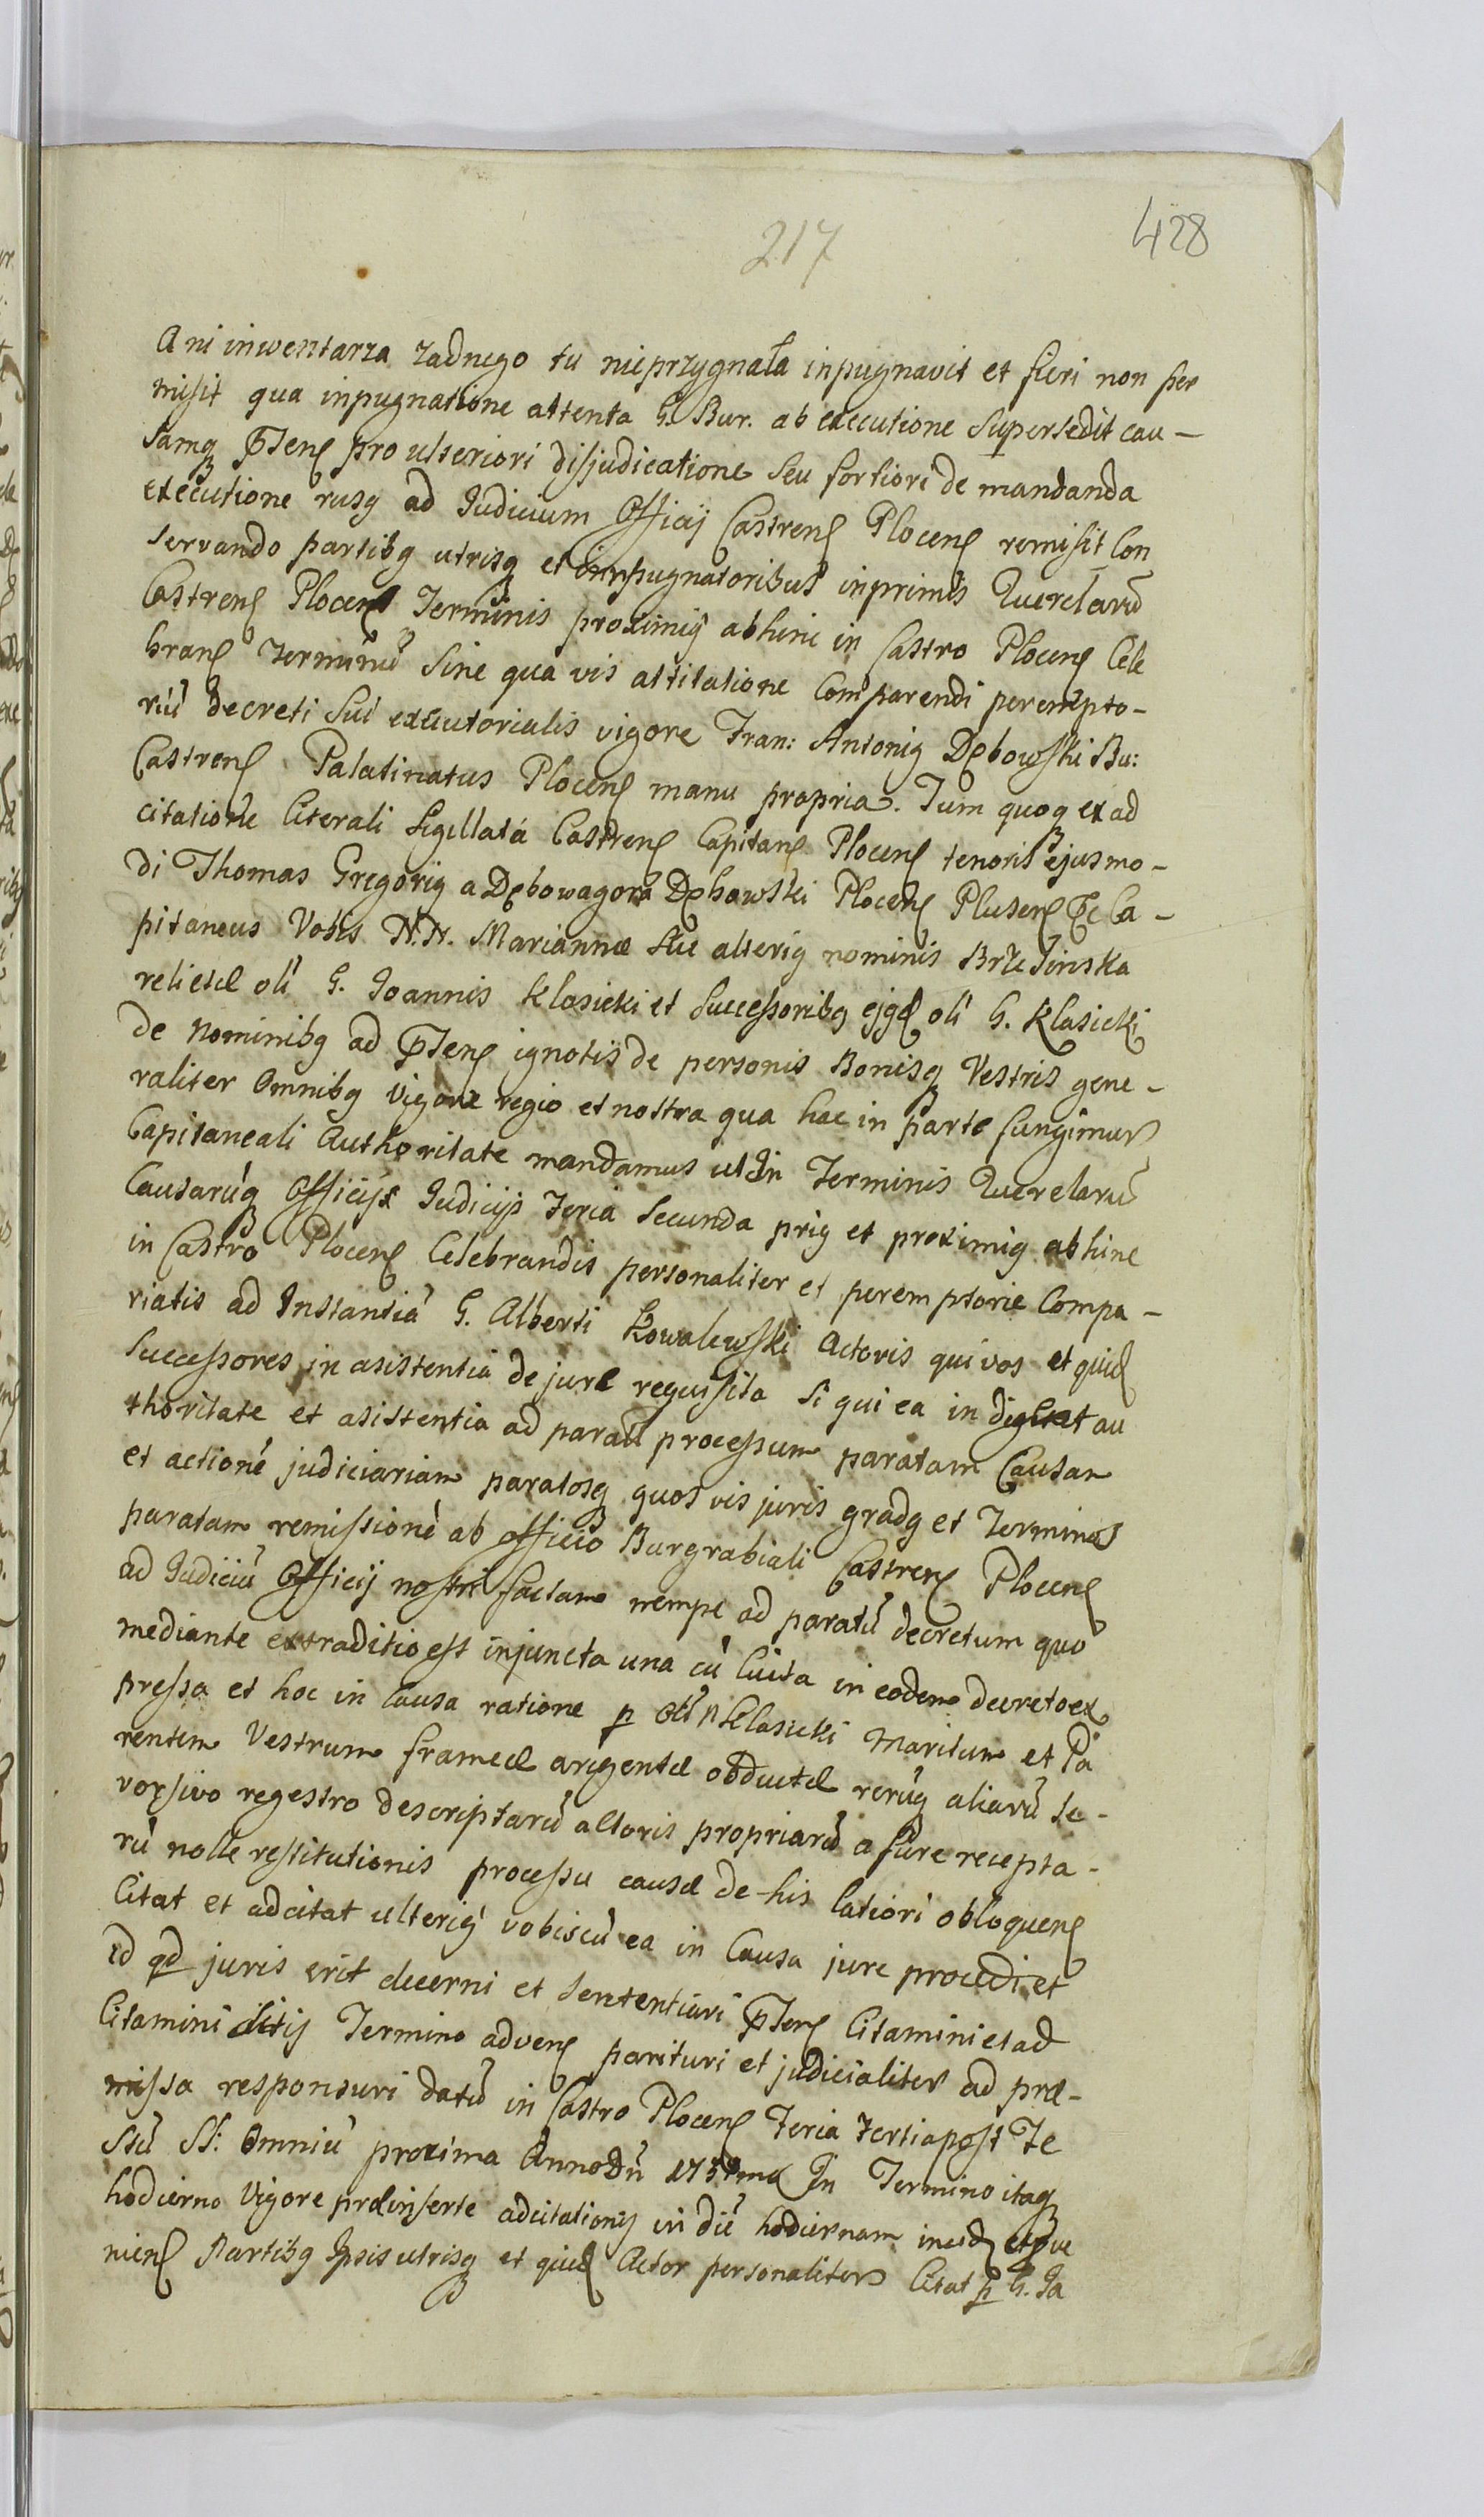 217
428
Ani inwentarza zadnego tu nieprzygnała inpugnavit et fieri non per
misit qua inpugnatione attenta G. Bur. ab executione supersedit cau-
samq pten pro ulteriori disjudicatione seu fortiori de mandanda
executione rusq ad Judicium Officij Castren Plocen remisit Con
servando partibq utrisq et impugnatoribus inprimis Querelarũ
Castren Plocen Terminis proximiq abhinc in Castro Plocen Cele
bran Terminũ sine qua vis attitatione Comparendi perempto-
riũ decreti sui executorialis vigore Fran: Antoniq Dębowski Bu:
Castren Palatinatus Plocen manu propria. Tum quoq ex ad
citatione literali sigillatá Castren Capitan Plocen tenoris ejusmo-
di Thomas Gregoriq a Dębowagora Dębowski Plocen Ca-
pitaneus Vobis N.N. Mariannæ sive alteriq nominis Brzezinska
relictæ oli G. Joannis Klasicki et Successoribq ejqd oli G. Klasicki
de Nominibq ad pten ignotis de personis Bonisq Vestris gene-
raliter Omnibq Vigore regio et nostra qua hac in parte fungimur
Capitaneali Authoritate mandamus ut In Terminis Querelarũ
Causarũq Officij Judicijs feria Secunda priq et proximiq abhinc
in Castro Plocen Celebrandis personaliter et peremptorie Compa-
riatis ad Instantiá G. Alberti Kowalewski Actoris qui vos et quid
Successores in asistentiá de jure requisita si qui ea in au
thoritate et asistentia ad paratũ processum paratam Causam
et actioné judiciariam paratosq quos vis juris gradq et Terminos
paratam remissioné ab officio Burgrabiali Castren Plocen
ad Judiciũ Officij nostri factam nempe ad paratũ decretum quo
mediante extraditio est injuncta una cũ luita in eodem decreto ex
pressa et hoc in Causa ratione p Klasicki Maritum et Pa
rentem Vestrum frameæ argentæ obductæ rerũq aliarũ se-
vorsivo regestro descriptarũ actoris propriarũ a fure recepta-
rũ nolle restitutionis processu causæ de his latiori obloquen
Citat et adcitat ulteriq vobiscũ ea in Causa jure procedi et
id qd juris erit decerni et sententiari pten Citamini et ad
Citamini Termino adven parituri et judicialiter ad præ-
missa responsuri datũ in Castro Plocen Feria tertia post Fe
stũ SS: Omniũ proxima Anno Dñ In Termino itaq
hodierno Vigore præinserte adcitationis in dié hodiernam incid
nien Partibq Ipsis utrisq et quid Actor personaliter Citat p G. Ja